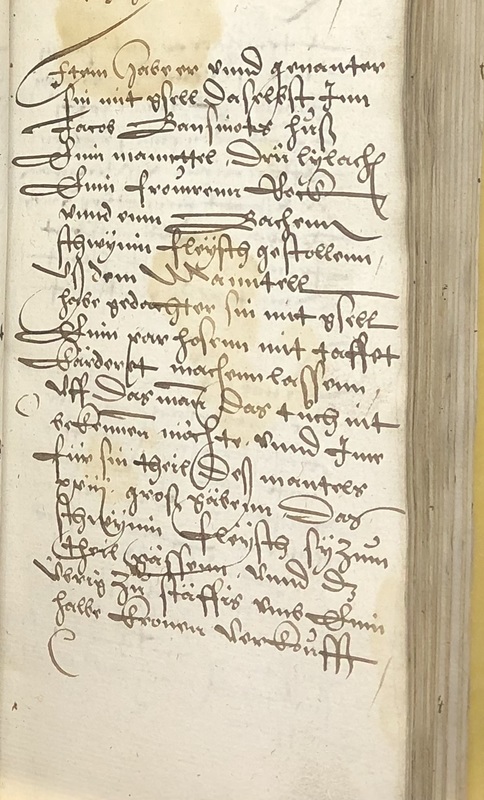 Item habe er vnnd genanter
sin mit gsell daselbst Inn
Jacob huß
Einn manttel, drü lylach
Einn frouwenn Rock
vnnd einn Bachenn
schwynin fleysch gestollenn,
vß dem Manntell
habe gedachter sin mit gsell
Einn par hosenn mit taffet
machenn lassenn,
vff das man das tuch nit
bekennen möchte, vnnd Ime
für sin theil des mantels
xxiij groß gäbenn Das
schwynin fleysch sy zum
theil gässenn, vnnd dz
übrig zu stäffis vmb Einn
halbe kronen verkoufft